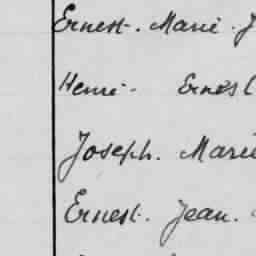 Ernest. Marie. J
Henri. Ernest
Joseph. Marie
Ernest. Jean.